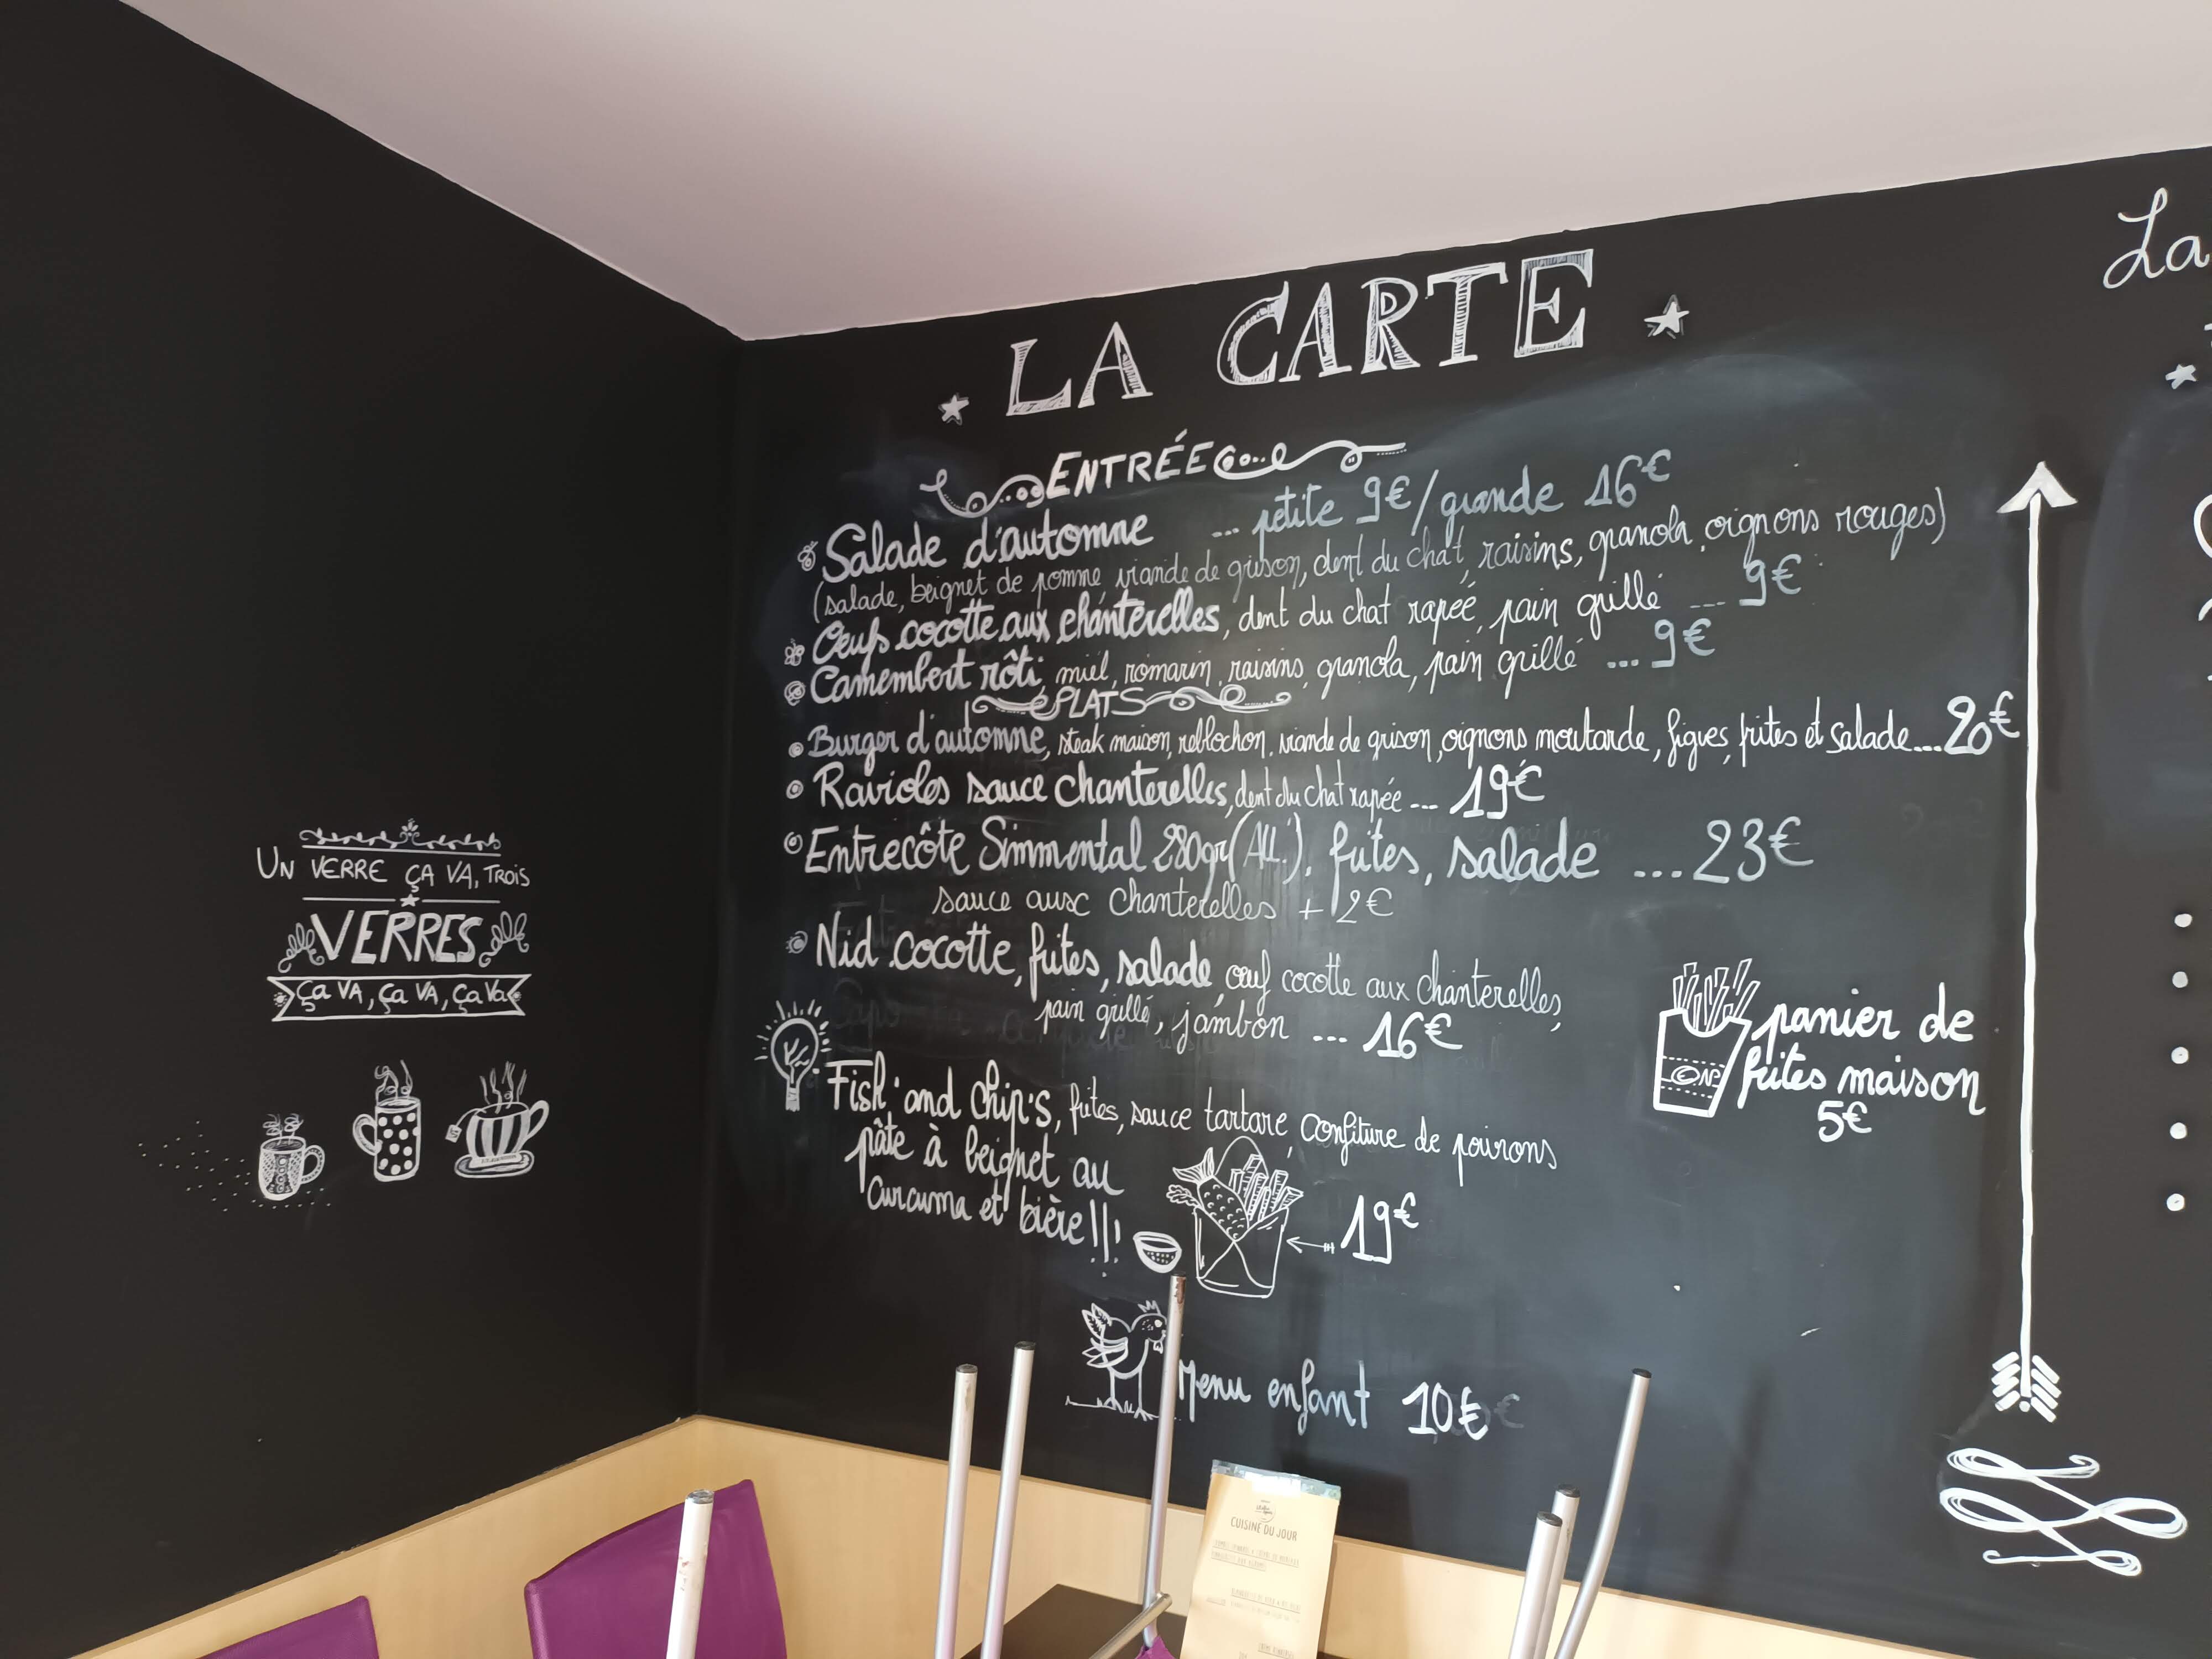 UN VERRE ÇA VA, TROIS
VERRES
ÇA VA, ÇA VA, ÇA VA
LA CARTE
ENTRÉE
Salade d'automne ... petite 9€/grande 16€
(salade, beignet de pomme viande de grison, dent du chat, raisins, granola, oignons rouges)
Oeufs cocotte aux chanterelles, dent du chat rapée, pain grillé ... 9€
Camembert rôti, miel, romarin, raisins, granola, pain grillé ... 9€
PLATS
Burger d'automne, steak maison, reblochon, viande de grison, oignons moutarde, figues, frites et salade...20€
Ravioles sauce chanterelles, dent du chat rapée ... 19€
Entrecôte Simmental 280gr (All.), frites, salade ...23€
sauce aux Chanterelles + 2€
Nid cocotte, frites, salade, œuf cocotte aux chanterelles,
pain grillé, jambon ... 16€
Fish and Chip's, frites, sauce tartare, confiture de poivrons
pâte à beignet au
Curcuma et bière!!!
19€
panier de
frites maison
5€
Menu enfant 10€
La
CUISINE DU JOUR